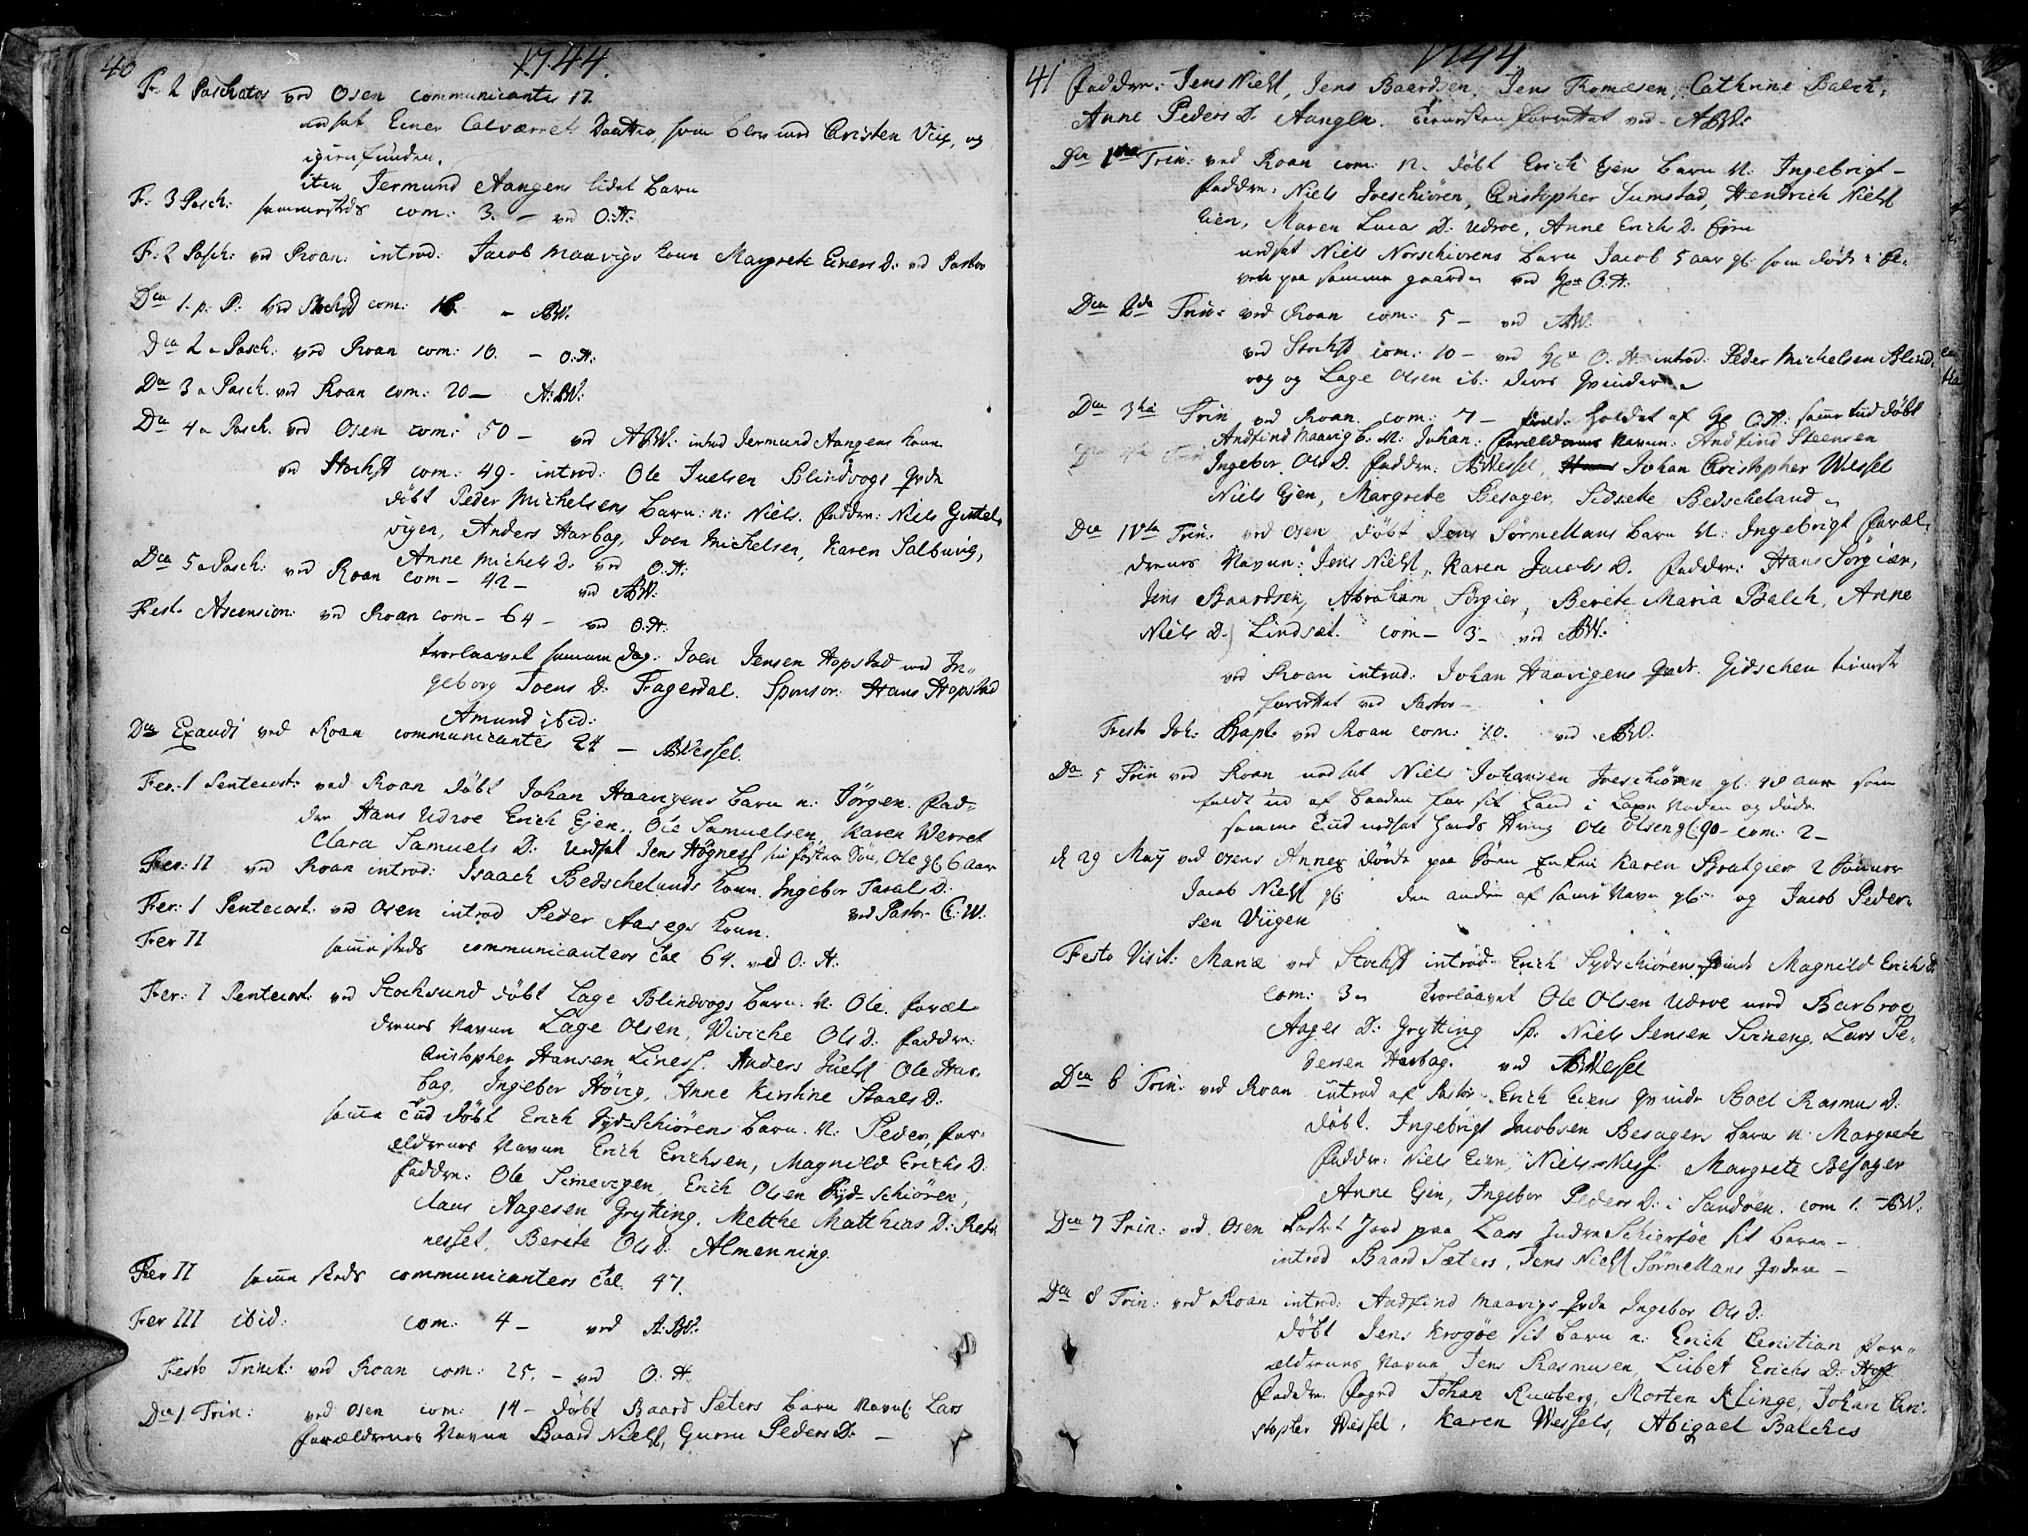 40
1744.
F. 2 Paschatos ved Osen communicantes 17.
udsat Einer Calværrets Daatter, som blev med Christen Viig, og
igienfunden.
item Jermund Aangens lidet barn
F: 3 Pasch: sammesteds com: 3. – ved O:H:
F: 2 Pasch: ved Roan: introd: Jacob Maavigs kone Margrete Einers D: ved Pastor
Dca 1. p. P: ved Stochsd com: 16 – ABW.
Dca 2 a Pasch: ved Roan com: 10. – O:H:
Dca 3 a Pasch: ved Roan com: 20 – A:BW:
Dca 4 a Pasch. ved Osen com: 50 – ved ABW: introd Jermund Aangens kone
ved Stochsd com: 49 – introd: Ole Juelsen Blindvogs qvde
døbt Peder Michelsens barn: n: Niels. Faddre: Niels Gittel-
vigen, Anders Harbag, Joen Michelsen, Karen Salbuvig,
Anne Michels D. ved O:H:
Dca 5 a Pasch: ved Roan com – 42 – ved ABW:
Festo Ascension: ved Roan com – 64 – ved O:H:
trorlaavet samme dag: Joen Jensen Hopstad med In-
geborg Joens D: Fagerdal. Sponsor: Hans Hopstad
Amund ibid:
Dca Exaudi ved Roan communicantes 24 – ABWessel.
Fer: 1 Pentecost: ved Roan døbt Johan Haavigens barn n: Jörgen. Fad-
dre Hans Udroe Erich Ejen, Ole Samuelsen, Karen Werret
Clara Samuels D: Udsat Jens Högness sin foster Søn, Ole gl: 6 aar
Fer: II ved Roan introd: Isaach Bedschelands kone. Ingebor Taral D:
ved Pastor C:W.
Fer: 1 Pentecost: ved Osen introd Peder Aasegs kone.
Fer II samesteds communicanters tal 64. ved O:H:
Fer: 1 Pentecost: ved Stochsund døbt Lage Blindvogs barn. N: Ole. Foræl-
drenes Navne Lage Olsen, Wiviche Ols D: Faddre:
Christopher Hansen Liness. Anders Juels Ole Har-
bag, Ingebor Höieg, Anne Kirstine Staals D:
samme tiid døbt Erich Syd-Schiörens barn. N: Peder, for-
ældrenes Navne Erich Erichsen, Magnild Erichs D:
Faddre: Ole Simevigen, Erich Olsen Syd-Schiören,
Claus Aagesen Grytting. Metthe Matthias D: Refs-
nesset. Berete Ols D: Almenning
Fer II samme steds communicanters tal 47.
Fer III ibid: com: 4 – ved A:BW:
Festo Trinit: ved Roan com: 25. – ved O:H:
Dca 1 Trin: ved Osen com: 14 – døbt Baard Sæters barn Navnl: Lars
forældrenes Navne Baard Niels, Guren Peders D: –
41
1744
Faddre: Jens Niels, Jens Baardsen, Jens Thomesen, Cathrine Balch,
Anne Peders D. Aangen. Tienesten forrettet ved – ABW:
Dca 1ma Trin: ved Roan com: 12. døbt Erich Ejens barn N: Ingebrigt –
Faddre: Niels Joeschiören, Christopher Sumstad, Hendrich Niels
Eien, Maren Lucas D: Udroe, Anne Erichs D:
udsat Niels Norschiörens barn Jacob 5 aar gl: som døde i
paa samme gaarde ved Hr O:H:
Dca 2da Trin: ved Roan com: 5 – ved ABW:
ved Stochsd com: 10 – ved Hr O:H: introd: Peder Michelsen Blind-
vog og Lage Olsen ib: deres Qvinder
Dca 3tia Trin ved Roan com: 7 – holdet af Hr O:H: samme tiid døbt
Andfind Maavigs b: N: Johan: Forældrenes Navne: Andfind Steensen
Ingebor Ols D. Faddre: ABWessel, Johan Christopher Wessel
Niels Ejen, Margrete Besager, Sidsele Bedscheland
Dca IVta Trin: ved Osen døbt Jens Sörmellans barn N: Ingebrigt foræl-
drenes Navne: Jens Niels, Karen Jacobs D. Faddre: Hans Sörgier,
Jens Baardsen, Abraham Sörgier, Berete Maria Balch, Anne
Niels D. Lindsæt. com – 3 – ved ABW:
ved Roan introd: Johan Haavigens Qvde. Gidschen tienest
forrettet ved Pastor –
Festo Joh: Bapt: ved Roan com: 10. ved ABW.
Dca 5 Trin ved Roan udsat Niels Johansen Joeschören gl: 18 aar som
faldt ud af baaden for sit Land i og døde
samme tiid udsat Ole Olsen gl: 90 – com: 2 –
d 29 Maij ved Osens Annex døde paa Søen Enken Karen Bratgier 2 Sønner
Jacob Niels gl: den anden af same Navn gl: og Jacob Peder-
sen Viigen
Festo Visit: Mariæ ved Stochsd introd: Erich Sydschiörens Qvinde Magnild Erichs D
com: 3. Trorlaavet Ole Olsen Udroe med Barbroe
Aages D: Grytting Sp: Niels Jensen Sirneng. Lars Pe-
dersen Harbag. ved ABWessel
Dca 6 Trin: ved Roan introd af Pastor Erich Eiens Qvinde Boel Rasmus D:
døbt. Ingebrigt Jacobsen Besagers barn n: Margrete
Faddre: Niels Eien, Niels Ness. Margrete Besager
Anne Ejen, Ingebor Peders D: i Sandöen. com 1. – ABW.
Dca 7 Trin: ved Osen kastet Jord paa Lars Indre Schiersöe sit barn –
introd Baard Sæters, Jens Niels Sörmellans Qvder –
Dca 8 Trin: ved Roan introd: Andfind Maavigs Qvde Ingebor Ols D:
døbt Jens Krogöe sit barn n: Erich Christian for-
ældrenes Navne Jens Rasmusen, Lisbet Erichs D: Hoff
Faddre: Fogd Johan Ruuberg, Morten Klinge, Johan Chri-
stopher Wessel, Karen Wessels, Abigael Balches